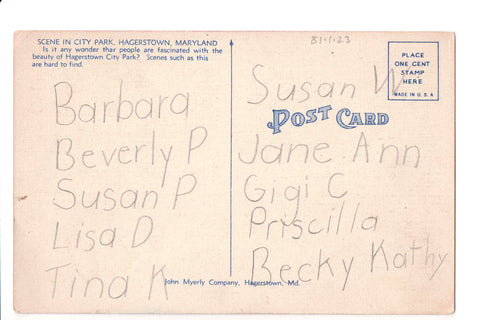 SCENE IN CITY PARK, HAGERSTOWN, MARYLAND
Is it any wonder that people are fascinated with the
beauty of Hagerstown City Park? Scenes such as this
are hard to find.
Barbara
Beverly P
Susan P
Lisa D
Tina K
John Myerly Company, Hagerstown, Md.
PLACE
ONE CENT
STAMP
HERE
MADE IN U.S.A
Susan W
POST CARD
Jane Ann
Gigi C
Priscilla
Becky Kathy